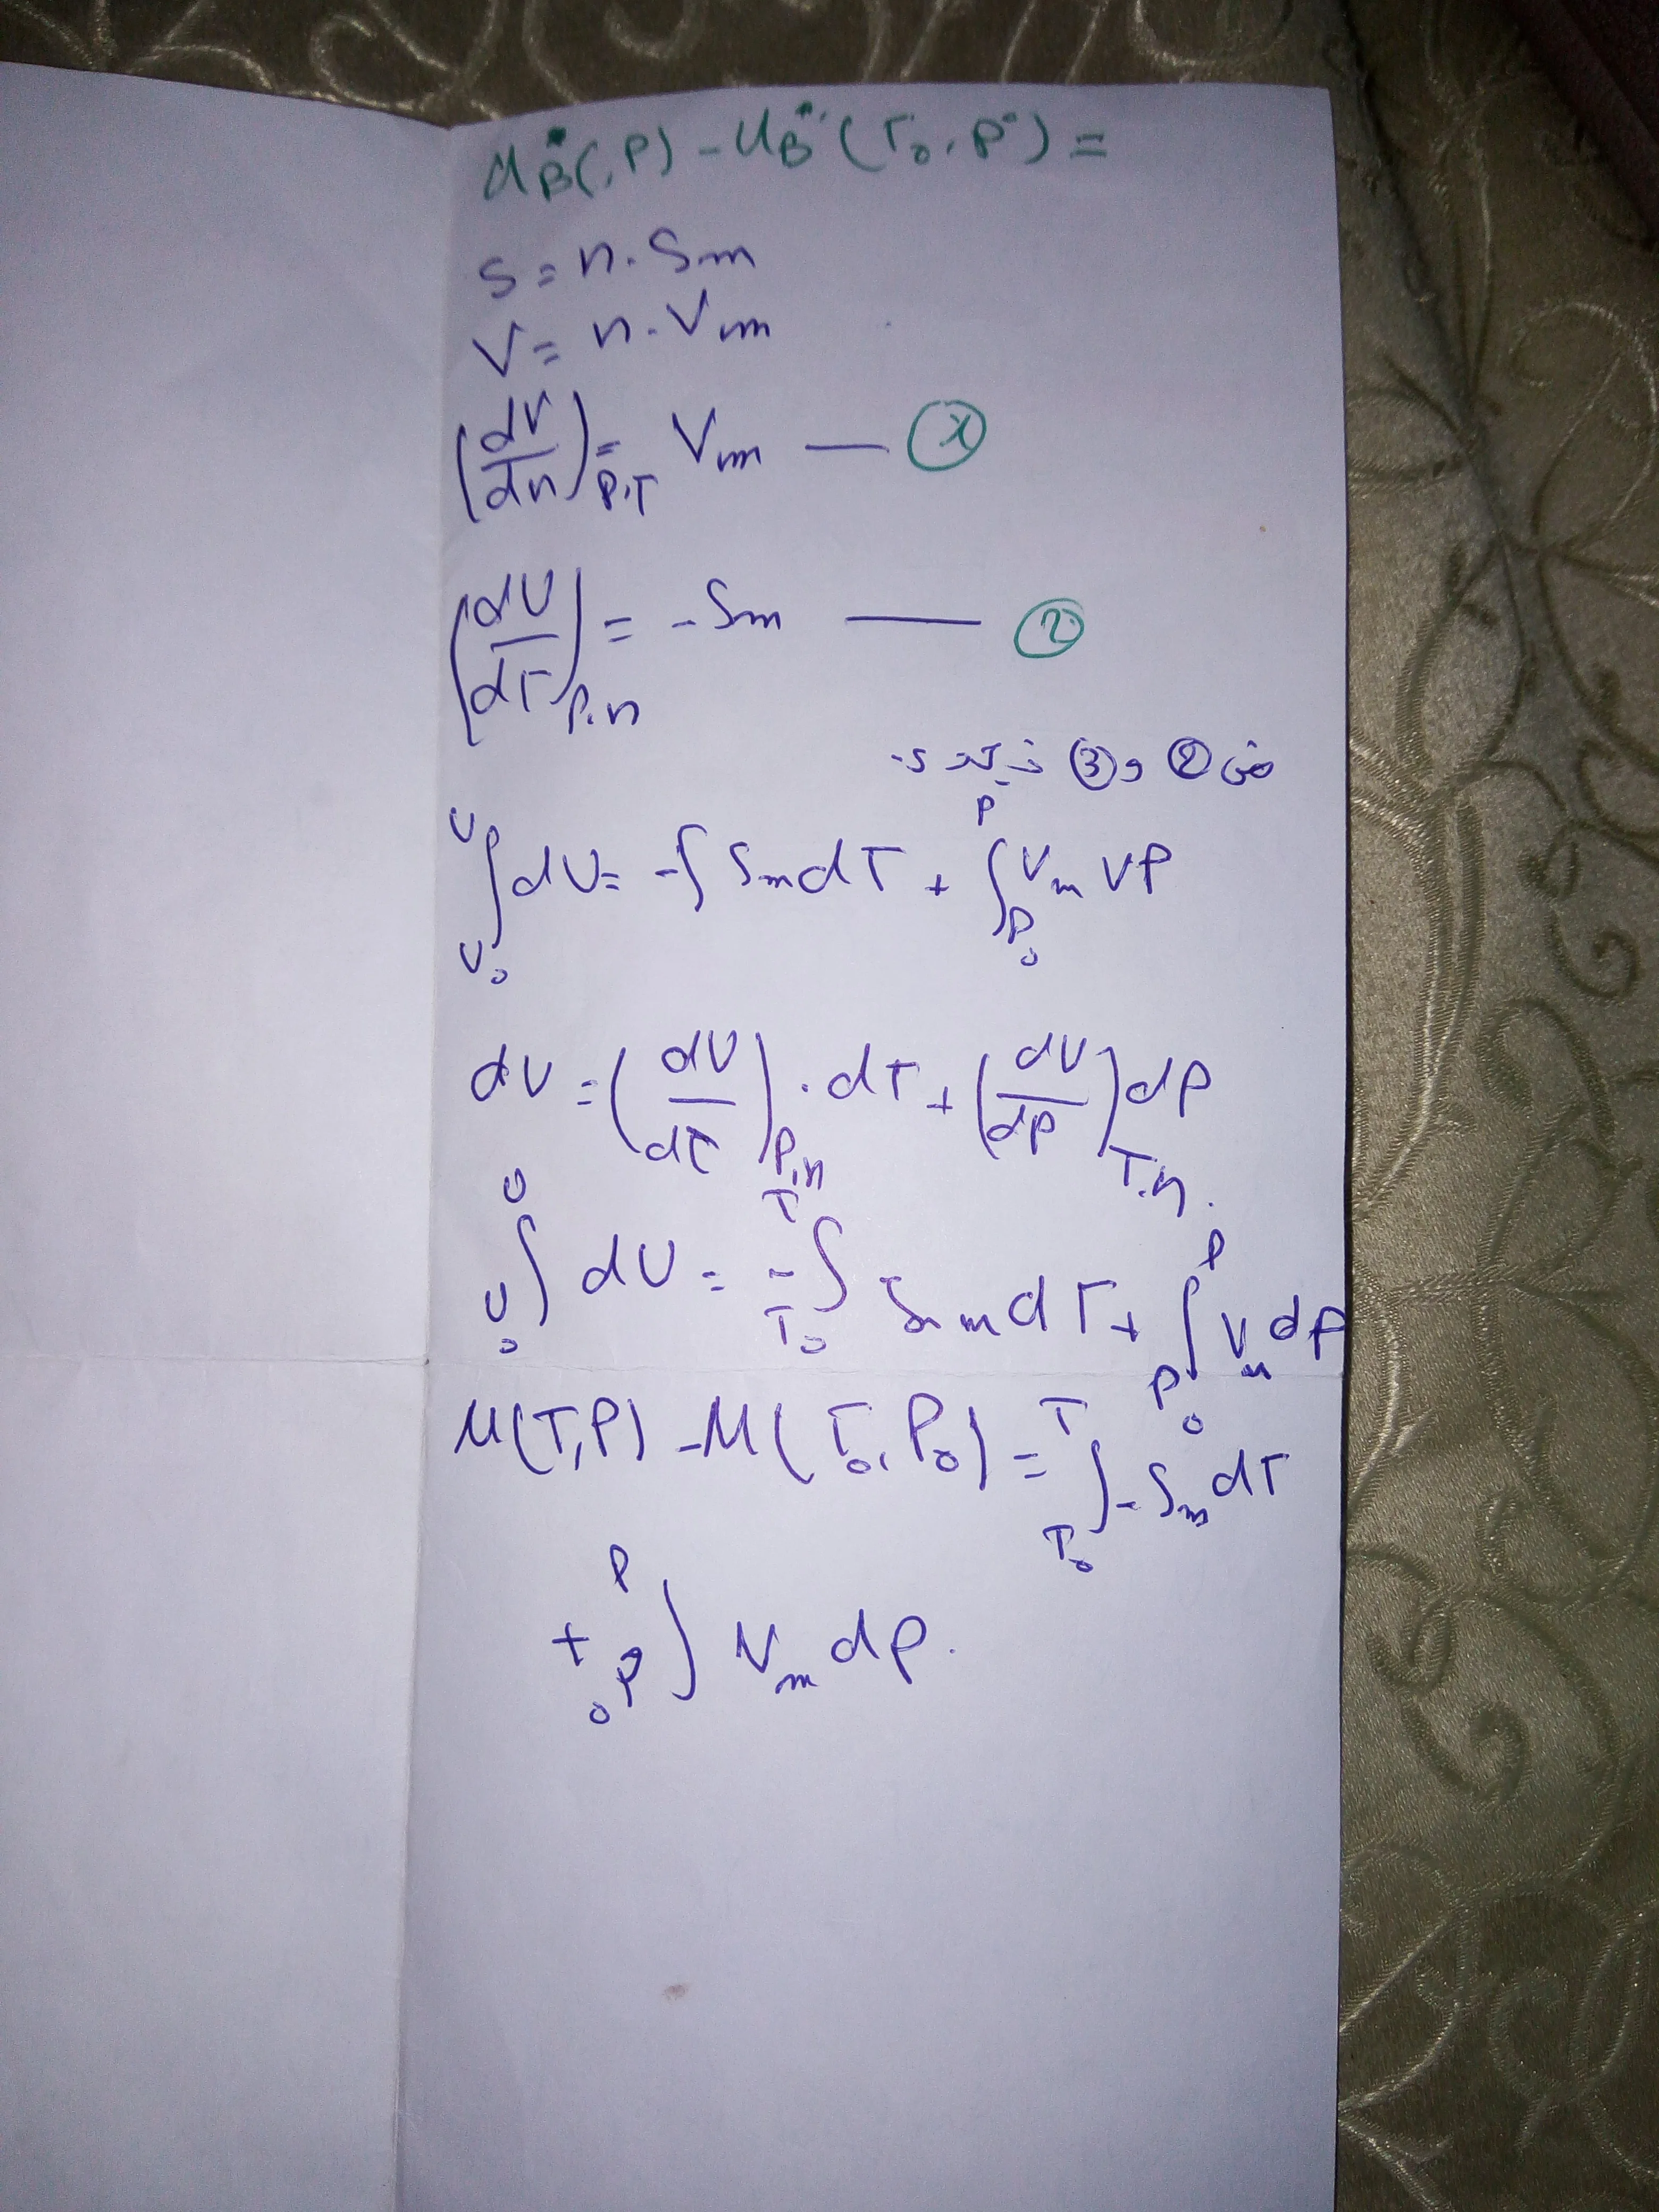 μB*(,P) - μB*(T₀,P°) =
S = n·Sm
V = n·Vm
(dV/dn)P,T = Vm — ①
(dU/dT)P,n = -Sm — ②
من ② و ③
∫U₀^U dU = -∫ Sm dT + ∫P₀^P Vm VP
dU = (dU/dT)P,n · dT + (dU/dP)T,n dP
∫U₀^U dU = -∫T₀^T Sm dT + ∫P₀^P Vm dP
M(T,P) - M(T₀,P₀) = ∫T₀^T -Sm dT
+ ∫P₀^P Vm dP.